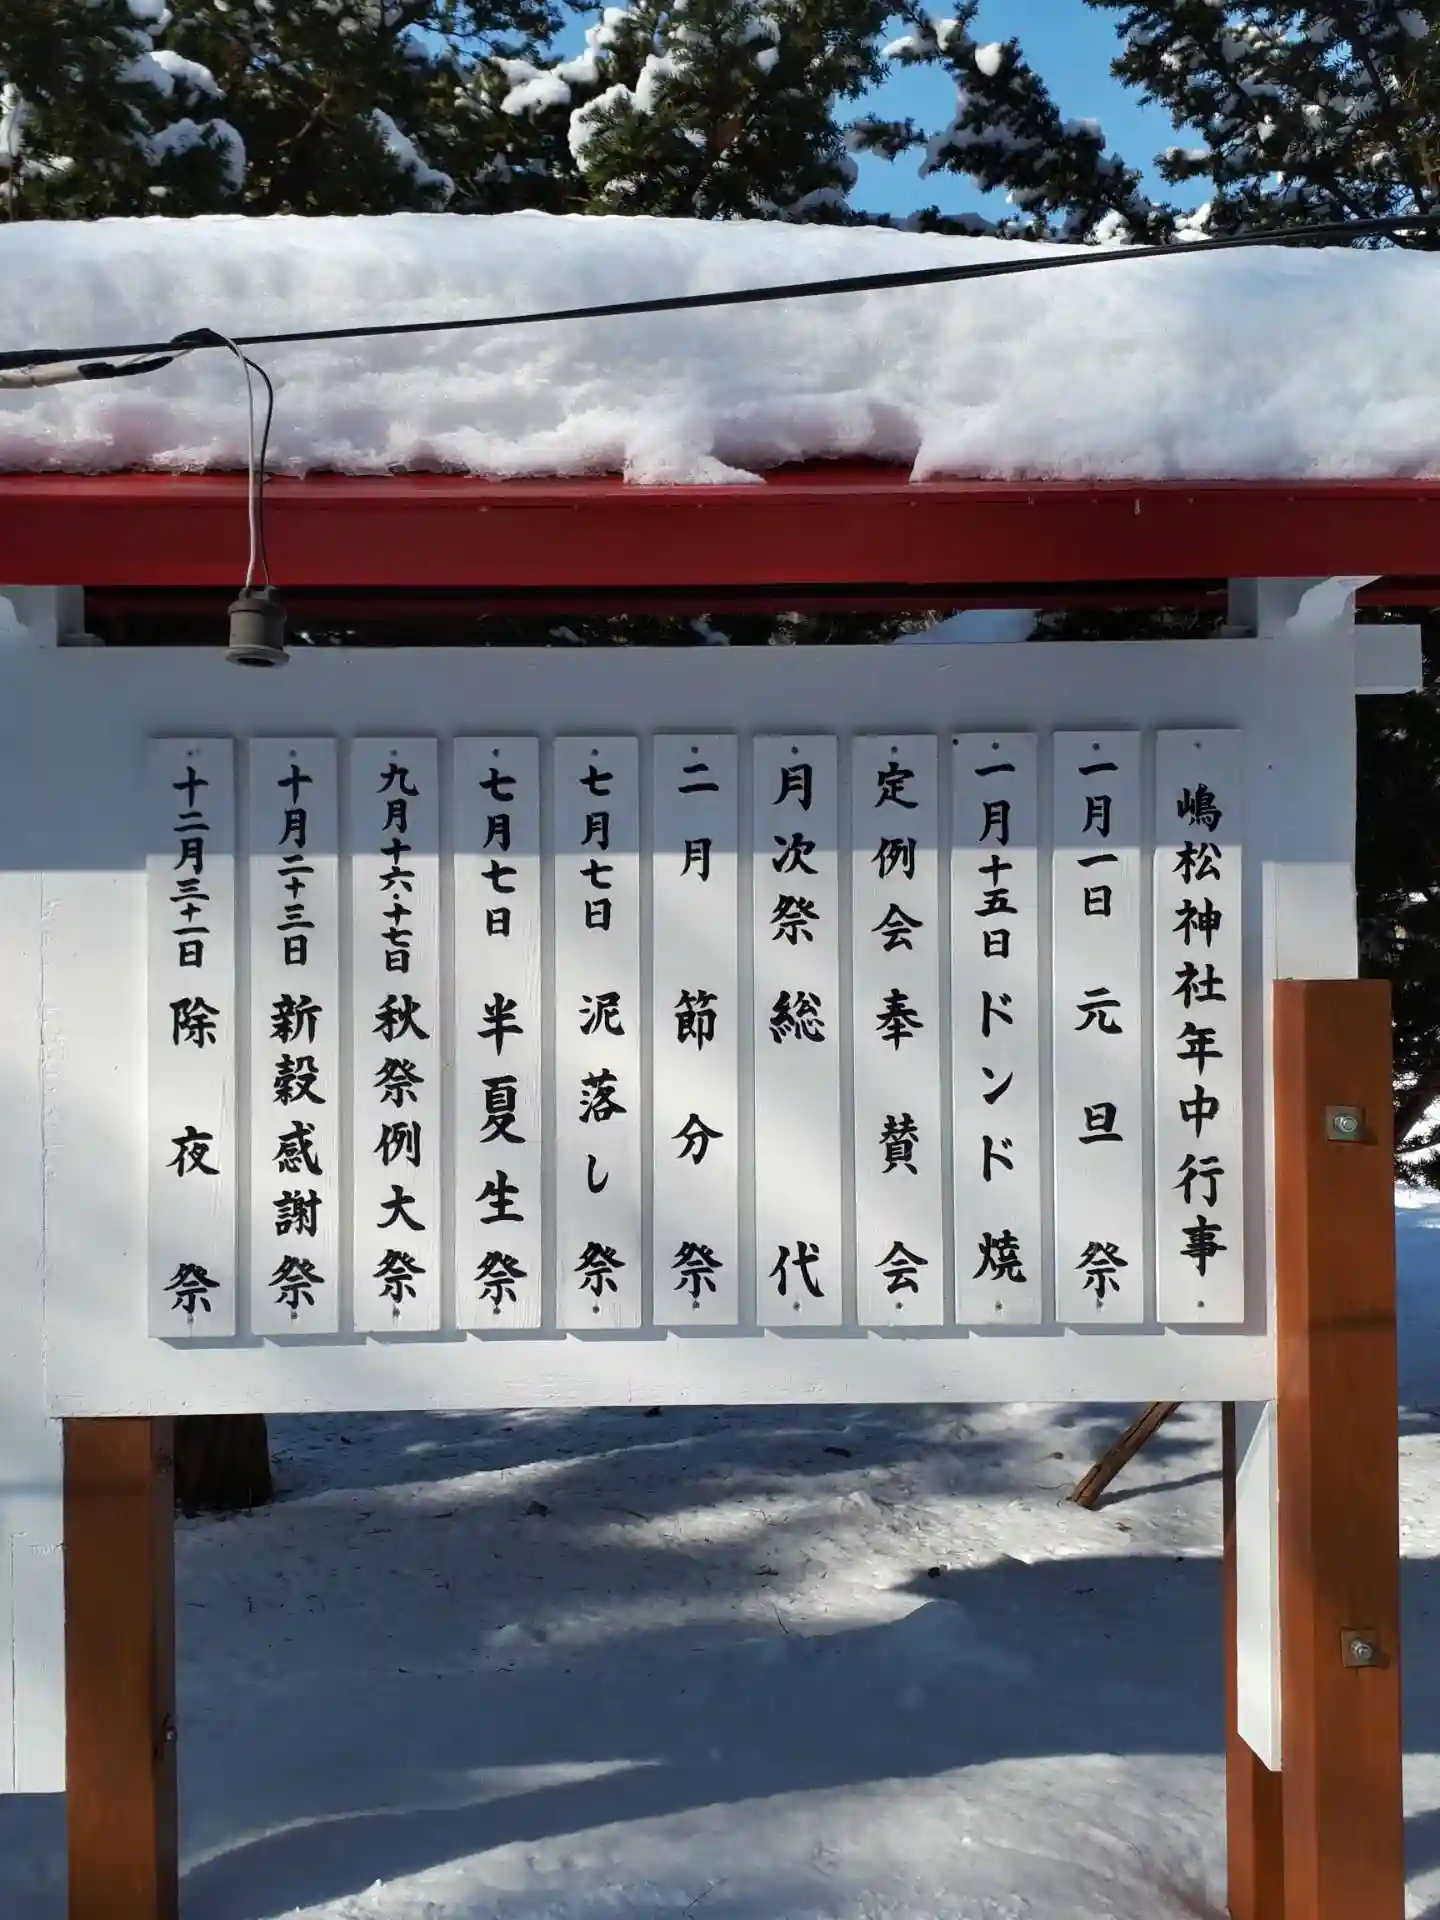 嶋松神社年中行事
一月一日 元旦祭
一月十五日 ドンド焼
定例会奉賛会
月次祭総代
二月 節分祭
七月七日 泥落し祭
七月七日 半夏生祭
九月十六・十七日 秋祭例大祭
十月二十三日 新穀感謝祭
十二月三十一日 除夜祭